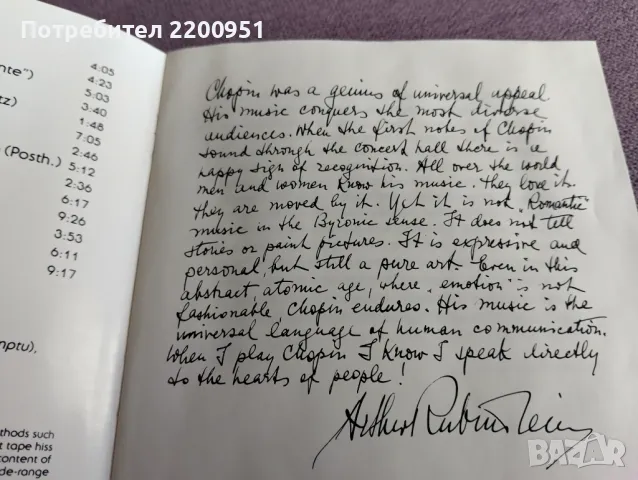 Потребител 2200951
nte")
tz)
(Posth.)
mptu),
thods such
t tape hiss
content of
de-range
4:05
4:23
5:03
3:40
1:48
7:05
2:46
5:12
2:36
6:17
9:26
3:53
6:11
9:17
Chopin was a genius of universal appeal
His music conquers the most diverse
audiences. When the first notes of Chopin
sound through the concert hall there is a
happy sigh of recognition. All over the world
men and women know his music. They love it.
They are moved by it. Yet it is not "Romantic"
music in the Byronic sense. It does not tell
stories or paint pictures. It is expressive and
personal, but still a pure art. Even in this
abstract, atomic age, where "emotion" is not
fashionable, Chopin endures. His music is the
universal language of human communication.
When I play Chopin I know I speak directly
to the hearts of people!
Arthur Rubinstein
BAZAR
bg